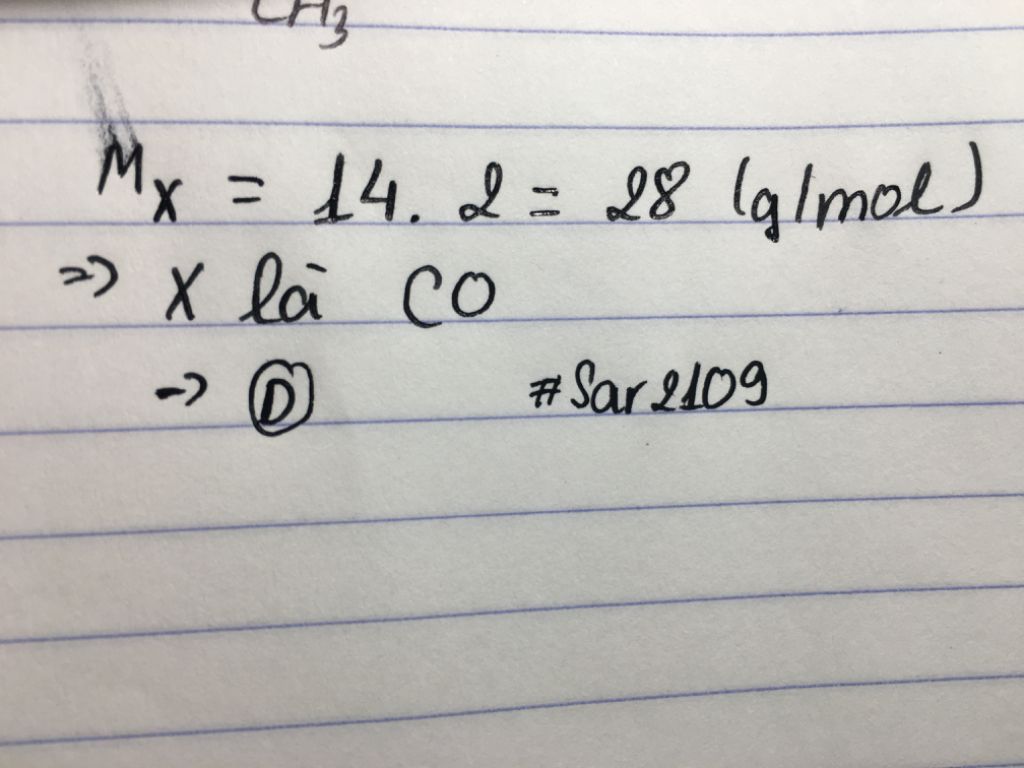 CH3
Mx = 14. 2 = 28 (g/mol)
=> X là CO
-> D #Sar2109